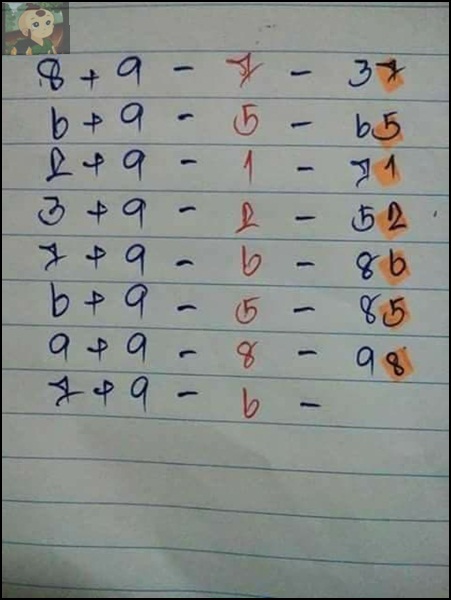 8 + 9 - 7 - 37
6 + 9 - 5 - 65
2 + 9 - 1 - 71
3 + 9 - 2 - 52
7 + 9 - 6 - 86
6 + 9 - 5 - 85
9 + 9 - 8 - 98
7 + 9 - 6 -